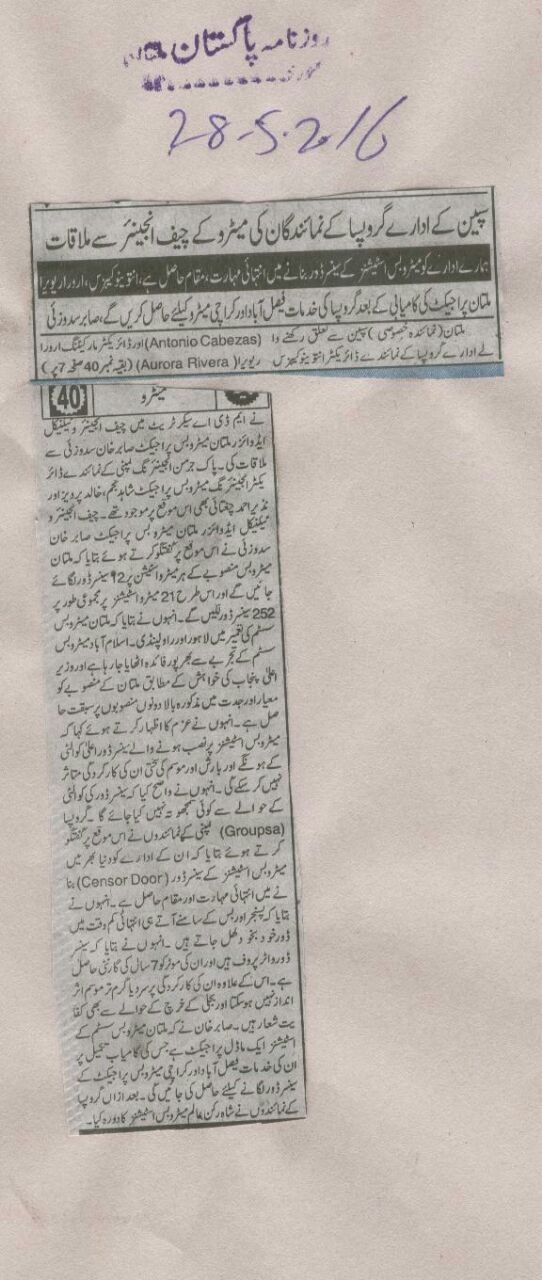 روزنامہ پاکستان ملتان
28-5-2016
سپین کے ادارے گروپسا کے نمائندگان کی میٹرو کے چیف انجینئر سے ملاقات
ہمارے ادارے کو میٹروبس اسٹیشنز کے سینسر ڈور بنانے میں انتہائی مہارت، مقام حاصل ہے، انتونیو کبیزس، ارورا ریویرا
ملتان پراجیکٹ کی کامیابی کے بعد گروپسا کی خدمات فیصل آباد اور کراچی میٹرو کیلئے حاصل کریں گے، صابر سدوزئی
ملتان (نمائندہ خصوصی) سپین سے تعلق رکھنے وا
لے ادارے گروپسا کے نمائندے ڈائریکٹر انتونیو کبیزس
(Antonio Cabezas) اور ڈائریکٹر مارکیٹنگ ارورا
ریویرا (Aurora Rivera) (بقیہ نمبر 40 صفحہ 7 پر)
میٹرو 40
نے ایم ڈی اے سیکرٹریٹ میں چیف انجینئر و ٹیکنیکل
ایڈوائزر ملتان میٹروبس پراجیکٹ صابر خان سدوزئی سے
ملاقات کی۔ پاک جرمن انجینئرنگ کمپنی کے نمائندے ڈائر
یکٹر انجینئرنگ میٹروبس پراجیکٹ شاہد نجم، خالد پرویز اور
نذیر احمد چغتائی بھی اس موقع پر موجود تھے۔ چیف انجینئر و
ٹیکنیکل ایڈوائزر ملتان میٹروبس پراجیکٹ صابر خان
سدوزئی نے اس موقع پر گفتگو کرتے ہوئے بتایا کہ ملتان
میٹروبس منصوبے کے ہر میٹرو اسٹیشن پر 12 سینسر ڈور لگائے
جائیں گے اور اس طرح 21 میٹرو اسٹیشنز پر مجموعی طور پر
252 سینسر ڈور لگیں گے۔ انہوں نے بتایا کہ ملتان میٹروبس
سسٹم کی تعمیر میں لاہور اور راولپنڈی۔ اسلام آباد میٹروبس
سسٹم کے تجربے سے بھرپور فائدہ اٹھایا جا رہا ہے اور وزیر
اعلیٰ پنجاب کی خواہش کے مطابق ملتان کے منصوبے کو
معیار اور جدت میں مذکورہ بالا دونوں منصوبوں پر سبقت حا
صل ہے۔ انہوں نے عزم کا اظہار کرتے ہوئے کہا کہ
میٹروبس اسٹیشنز پر نصب ہونے والے سینسر ڈور اعلیٰ کوالٹی
کے ہونگے اور بارش اور موسم کی سختی ان کی کارکردگی متاثر
نہیں کر سکے گی۔ انہوں نے واضح کیا کہ سینسر ڈور کی کوالٹی
کے حوالے سے کوئی سمجھوتہ نہیں کیا جائے گا۔ گروپسا
(Groupsa) کمپنی کے نمائندوں نے اس موقع پر گفتگو
کرتے ہوئے بتایا کہ ان کے ادارے کو دنیا بھر میں
میٹروبس اسٹیشنز کے سینسر ڈور (Censor Door) بنا
نے میں انتہائی مہارت اور مقام حاصل ہے۔ انہوں نے
بتایا کہ پسنجر اور بس کے سامنے آتے ہی انتہائی کم وقت میں
ڈور خود بخود کھل جاتے ہیں۔ انہوں نے بتایا کہ سینسر
ڈور واٹر پروف ہیں اور ان کی موٹر کو 7 سال کی گارنٹی حاصل
ہے۔ اس کے علاوہ ان کی کارکردگی پر سرد یا گرم تر موسم اثر
انداز نہیں ہو سکتا اور بجلی کے خرچ کے حوالے سے بھی کفا
یت شعار ہیں۔ صابر خان نے کہ ملتان میٹروبس سسٹم کے
اسٹیشنز ایک ماڈل پراجیکٹ ہے جس کی کامیاب تکمیل پر
ان کی خدمات فیصل آباد اور کراچی میٹروبس پراجیکٹ کے
سینسر ڈور لگانے کیلئے حاصل کی جائیں گی۔ بعد ازاں گروپسا
کے نمائندوں نے شاہ رکن عالم میٹروبس اسٹیشنز کا دورہ کیا۔